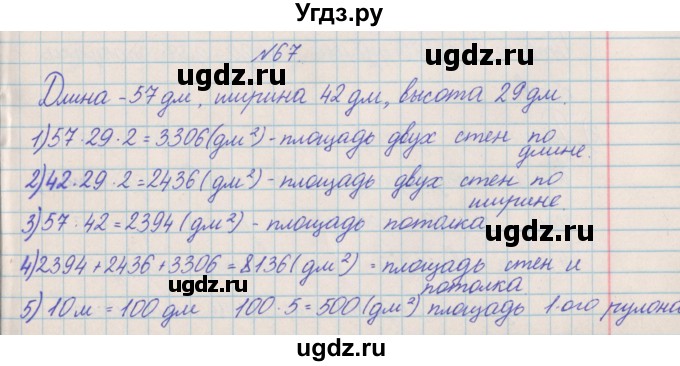 Угдз.ру
№67.
ugdz.ru ugdz.ru
Длина - 57 дм, ширина 42 дм, высота 29 дм.
1) 57 · 29 · 2 = 3306 (дм²) - площадь двух стен по
длине.
ugdz.ru ugdz.ru
2) 42 · 29 · 2 = 2436 (дм²) - площадь двух стен по
ширине.
3) 57 · 42 = 2394 (дм²) - площадь потолка
ugdz.ru ugdz.ru
4) 2394 + 2436 + 3306 = 8136 (дм²) - площадь стен и
потолка
5) 10 м = 100 дм 100 · 5 = 500 (дм²) площадь 1-ого рулона
ugdz.ru ugdz.ru